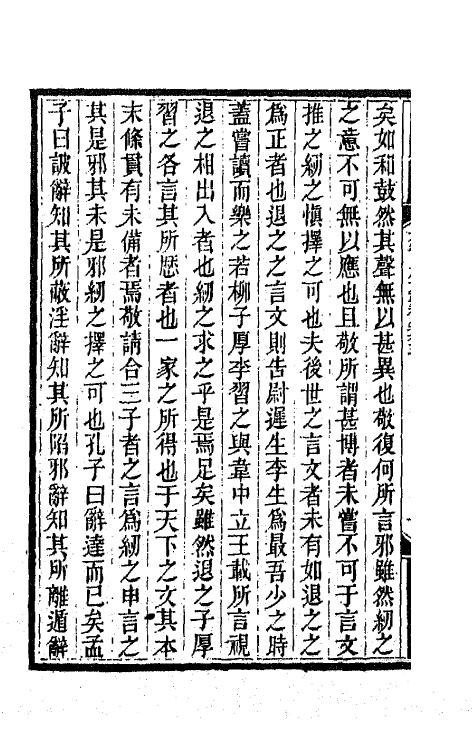 矣如和鼓然其聲無以甚異也敬復何所言邪雖然紉之
之意不可無以應也且敬所謂甚博者未嘗不可于言文
推之紉之愼擇之可也夫後世之言文者未有如退之之
爲正者也退之之言文則告尉遲生李生爲最吾少之時
蓋嘗讀而樂之若柳子厚李習之與韋中立王載所言視
退之相出入者也紉之求之乎是焉足矣雖然退之子厚
習之各言其所歷者也一家之所得也于天下之文其本
末條貫有未備者焉敬請合三子者之言爲紉之申言之
其是邪其未是邪紉之擇之可也孔子曰辭達而已矣孟
子曰詖辭知其所蔽淫辭知其所陷邪辭知其所離遁辭